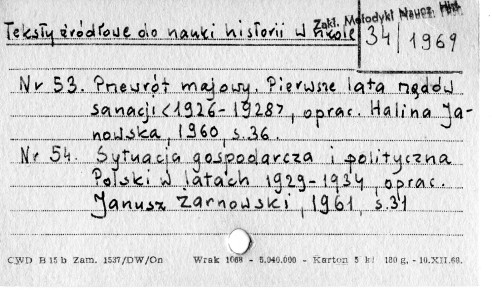 Zakł. Metodyki Naucz. Hist.
Teksty źródłowe do nauki historii w szkole
34/1969
Nr 53. Przewrót majowy. Pierwsze lata rządów
sanacji <1926-1928>, oprac. Halina Ja-
nowska, 1960, s.36.
Nr 54. Sytuacja gospodarcza i polityczna
Polski w latach 1929-1934, oprac.
Janusz Żarnowski, 1961, s.31
CWD B 15 b Zam. 1537/DW/On Wrak 1068 - 5.040.000 - Karton 5 kl 180 g, - 10.XII.68.